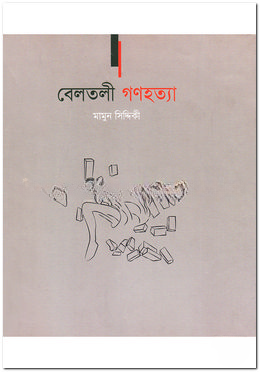 বেলতলী গণহত্যা
মামুন সিদ্দিকী